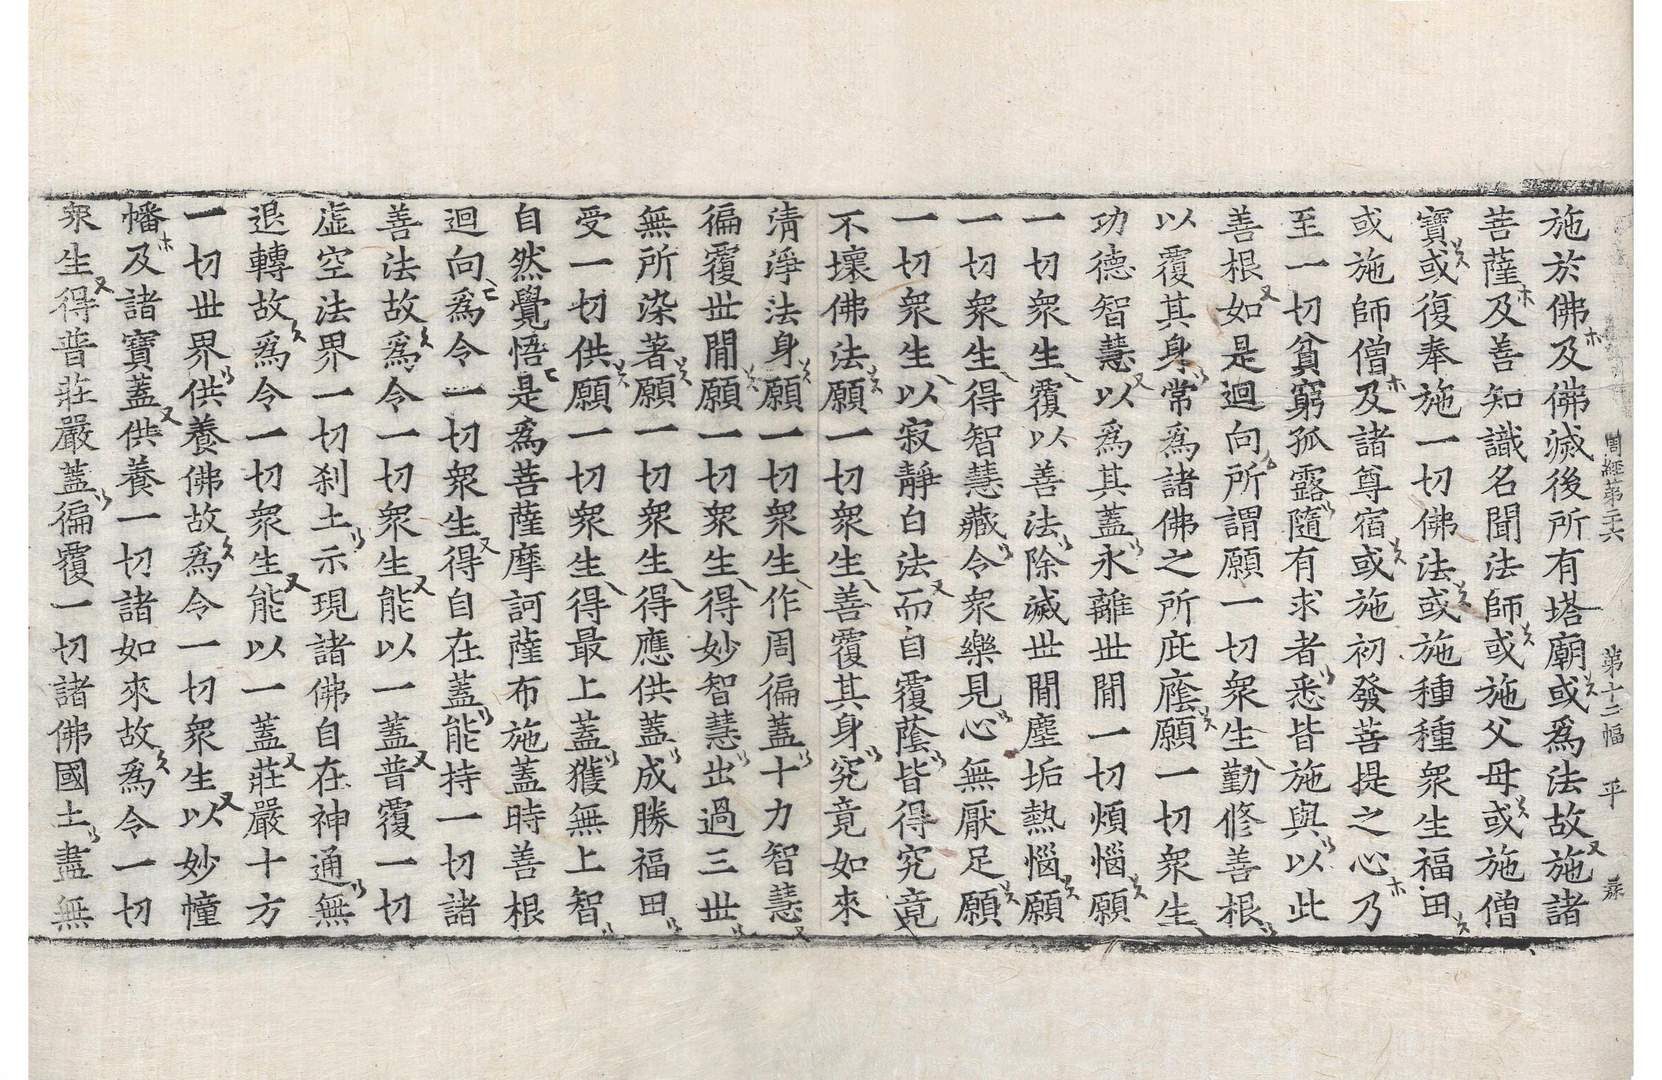 周經第二十六　第十二幅　平　𡘜
施於佛及佛滅後所有塔廟或爲法故施諸
菩薩及善知識名聞法師或施父母或施僧
寶或復奉施一切佛法或施種種衆生福田
或施師僧及諸尊宿或施初發菩提之心乃
至一切貧窮孤露隨有求者悉皆施與以此
善根如是迴向所謂願一切衆生勤修善根
以覆其身常爲諸佛之所庇廕願一切衆生
功德智慧以爲其蓋永離世閒一切煩惱願
一切衆生覆以善法除滅世閒塵垢熱惱願
一切衆生得智慧藏令衆樂見心無厭足願
一切衆生以寂靜白法而自覆蔭皆得究竟
不壞佛法願一切衆生善覆其身究竟如來
淸淨法身願一切衆生作周徧蓋十力智慧
徧覆世閒願一切衆生得妙智慧出過三世
無所染著願一切衆生得應供蓋成勝福田
受一切供願一切衆生得最上蓋獲無上智
自然覺悟是爲菩薩摩訶薩布施蓋時善根
迴向爲令一切衆生得自在蓋能持一切諸
善法故爲令一切衆生能以一蓋普覆一切
虛空法界一切刹土示現諸佛自在神通無
退轉故爲令一切衆生能以一蓋莊嚴十方
一切世界供養佛故爲令一切衆生以妙幢
幡及諸寶蓋供養一切諸如來故爲令一切
衆生得普莊嚴蓋徧覆一切諸佛國土盡無